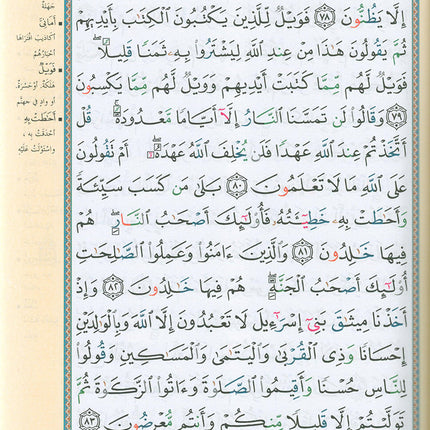 إِلَّا يَظُنُّونَ ٧٨ فَوَيْلٌ لِّلَّذِينَ يَكْتُبُونَ ٱلْكِتَٰبَ بِأَيْدِيهِمْ
ثُمَّ يَقُولُونَ هَٰذَا مِنْ عِندِ ٱللَّهِ لِيَشْتَرُوا۟ بِهِۦ ثَمَنًا قَلِيلًا ۖ
فَوَيْلٌ لَّهُم مِّمَّا كَتَبَتْ أَيْدِيهِمْ وَوَيْلٌ لَّهُم مِّمَّا يَكْسِبُونَ
٧٩ وَقَالُوا۟ لَن تَمَسَّنَا ٱلنَّارُ إِلَّآ أَيَّامًا مَّعْدُودَةً ۚ قُلْ
أَتَّخَذْتُمْ عِندَ ٱللَّهِ عَهْدًا فَلَن يُخْلِفَ ٱللَّهُ عَهْدَهُۥٓ ۖ أَمْ تَقُولُونَ
عَلَى ٱللَّهِ مَا لَا تَعْلَمُونَ ٨٠ بَلَىٰ مَن كَسَبَ سَيِّئَةً
وَأَحَٰطَتْ بِهِۦ خَطِيٓـَٔتُهُۥ فَأُو۟لَٰٓئِكَ أَصْحَٰبُ ٱلنَّارِ ۖ هُمْ
فِيهَا خَٰلِدُونَ ٨١ وَٱلَّذِينَ ءَامَنُوا۟ وَعَمِلُوا۟ ٱلصَّٰلِحَٰتِ
أُو۟لَٰٓئِكَ أَصْحَٰبُ ٱلْجَنَّةِ ۖ هُمْ فِيهَا خَٰلِدُونَ ٨٢ وَإِذْ
أَخَذْنَا مِيثَٰقَ بَنِىٓ إِسْرَٰٓءِيلَ لَا تَعْبُدُونَ إِلَّا ٱللَّهَ وَبِٱلْوَٰلِدَيْنِ
إِحْسَانًا وَذِى ٱلْقُرْبَىٰ وَٱلْيَتَٰمَىٰ وَٱلْمَسَٰكِينِ وَقُولُوا۟
لِلنَّاسِ حُسْنًا وَأَقِيمُوا۟ ٱلصَّلَوٰةَ وَءَاتُوا۟ ٱلزَّكَوٰةَ ثُمَّ
تَوَلَّيْتُمْ إِلَّا قَلِيلًا مِّنكُمْ وَأَنتُم مُّعْرِضُونَ ٨٣
جَهَلَةٌ
أَمَانِيَّ
أكاذيبَ افتراها
أحبارُهم
فَوَيْلٌ
هَلَكَةٌ، أو حَسْرَةٌ،
أو وادٍ في جهنّم
أَحَاطَتْ بِهِ
أَحْدَقَتْ بِهِ،
واستَوْلَتْ عليه